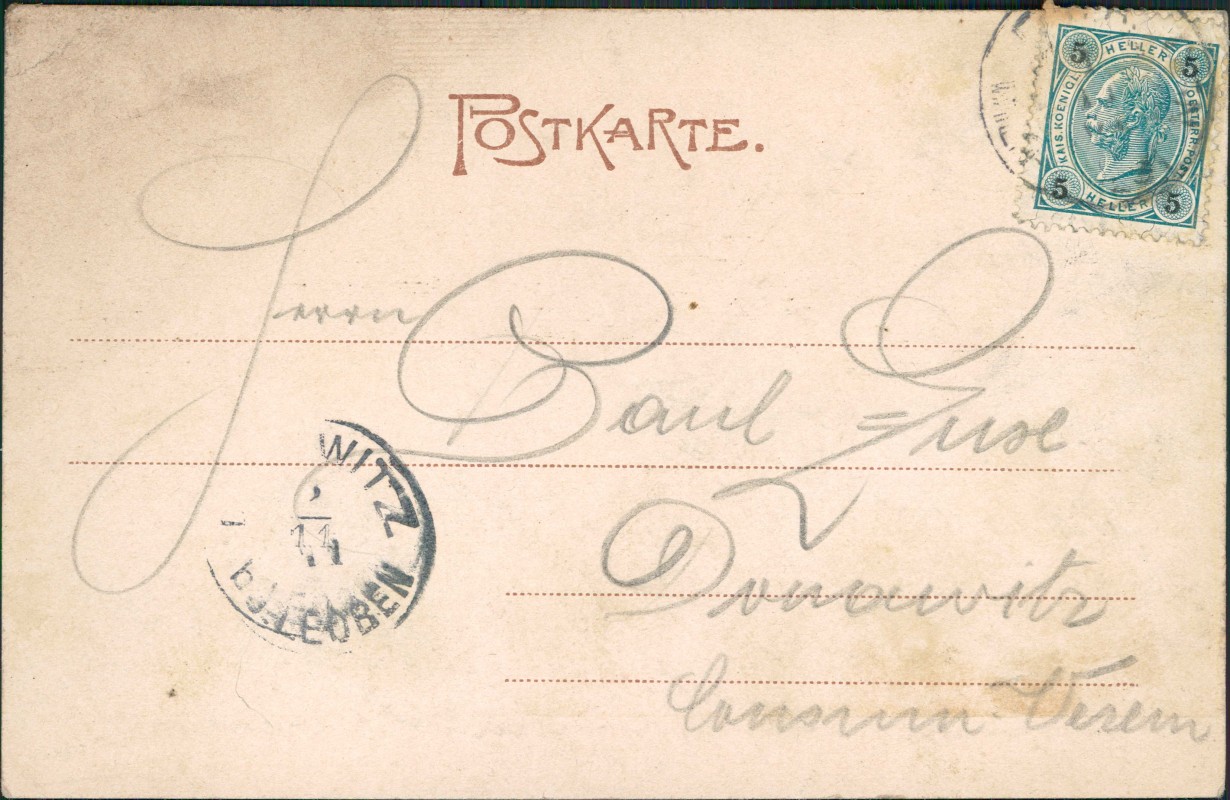 POSTKARTE.
5 HELLER 5
KAIS. KOENIGL. OESTERR. POST
5 HELLER 5
Herrn
Paul
Donawitz
Consum Verein
WITZ
11
b. LEOBEN